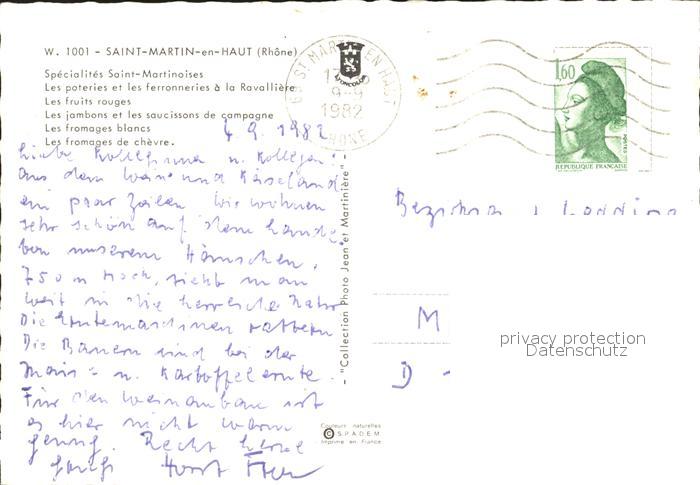 W. 1001 - SAINT-MARTIN-en-HAUT (Rhône)
Spécialités Saint-Martinoises
Les poteries et les ferronneries à la Ravallière
Les fruits rouges
Les jambons et les saucissons de campagne
Les fromages blancs
Les fromages de chèvre.
4.9.1982
Liebe Kolleginnen u. Kollegen!
aus dem Wein und Käseland
ein paar Zeilen. Wir wohnen
sehr schön auf dem Lande.
unserem Häuschen,
750 m hoch, sieht man
weit in die herrliche Natur
Die Erntemaschinen rattern
Die Bauern sind bei der
Mais- u. Kartoffelernte.
Für den Weinanbau ist
es hier nicht warm
genug. Recht herzl
Horst
- "Collection Photo Jean et Martinière" -
Couleurs naturelles
© S.P.A.D.E.M.
Imprimé en France
69 ST MARTIN EN HAUT
9-9
1982
RHONE
1,60
POSTES
REPUBLIQUE FRANÇAISE
M
D -
privacy protection
Datenschutz